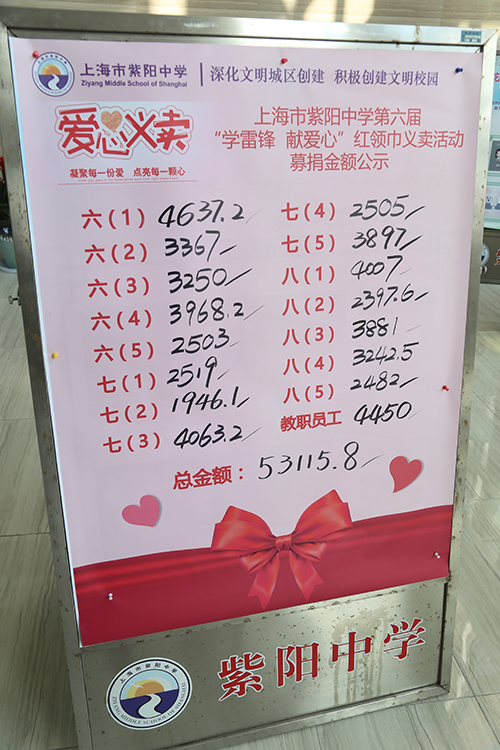 上海市紫阳中学
Ziyang Middle School of Shanghai
深化文明城区创建 积极创建文明校园
爱心义卖
凝聚每一份爱 点亮每一颗心
上海市紫阳中学第六届
“学雷锋 献爱心”红领巾义卖活动
募捐金额公示
六(1) 4637.2
六(2) 3367
六(3) 3250
六(4) 3968.2
六(5) 2503
七(1) 2519
七(2) 1946.1
七(3) 4063.2
七(4) 2505
七(5) 3897
八(1) 4007
八(2) 2397.6
八(3) 3881
八(4) 3242.5
八(5) 2482
教职员工 4450
总金额：53115.8
上海市紫阳中学
ZIYANG MIDDLE SCHOOL OF SHANGHAI
紫阳中学